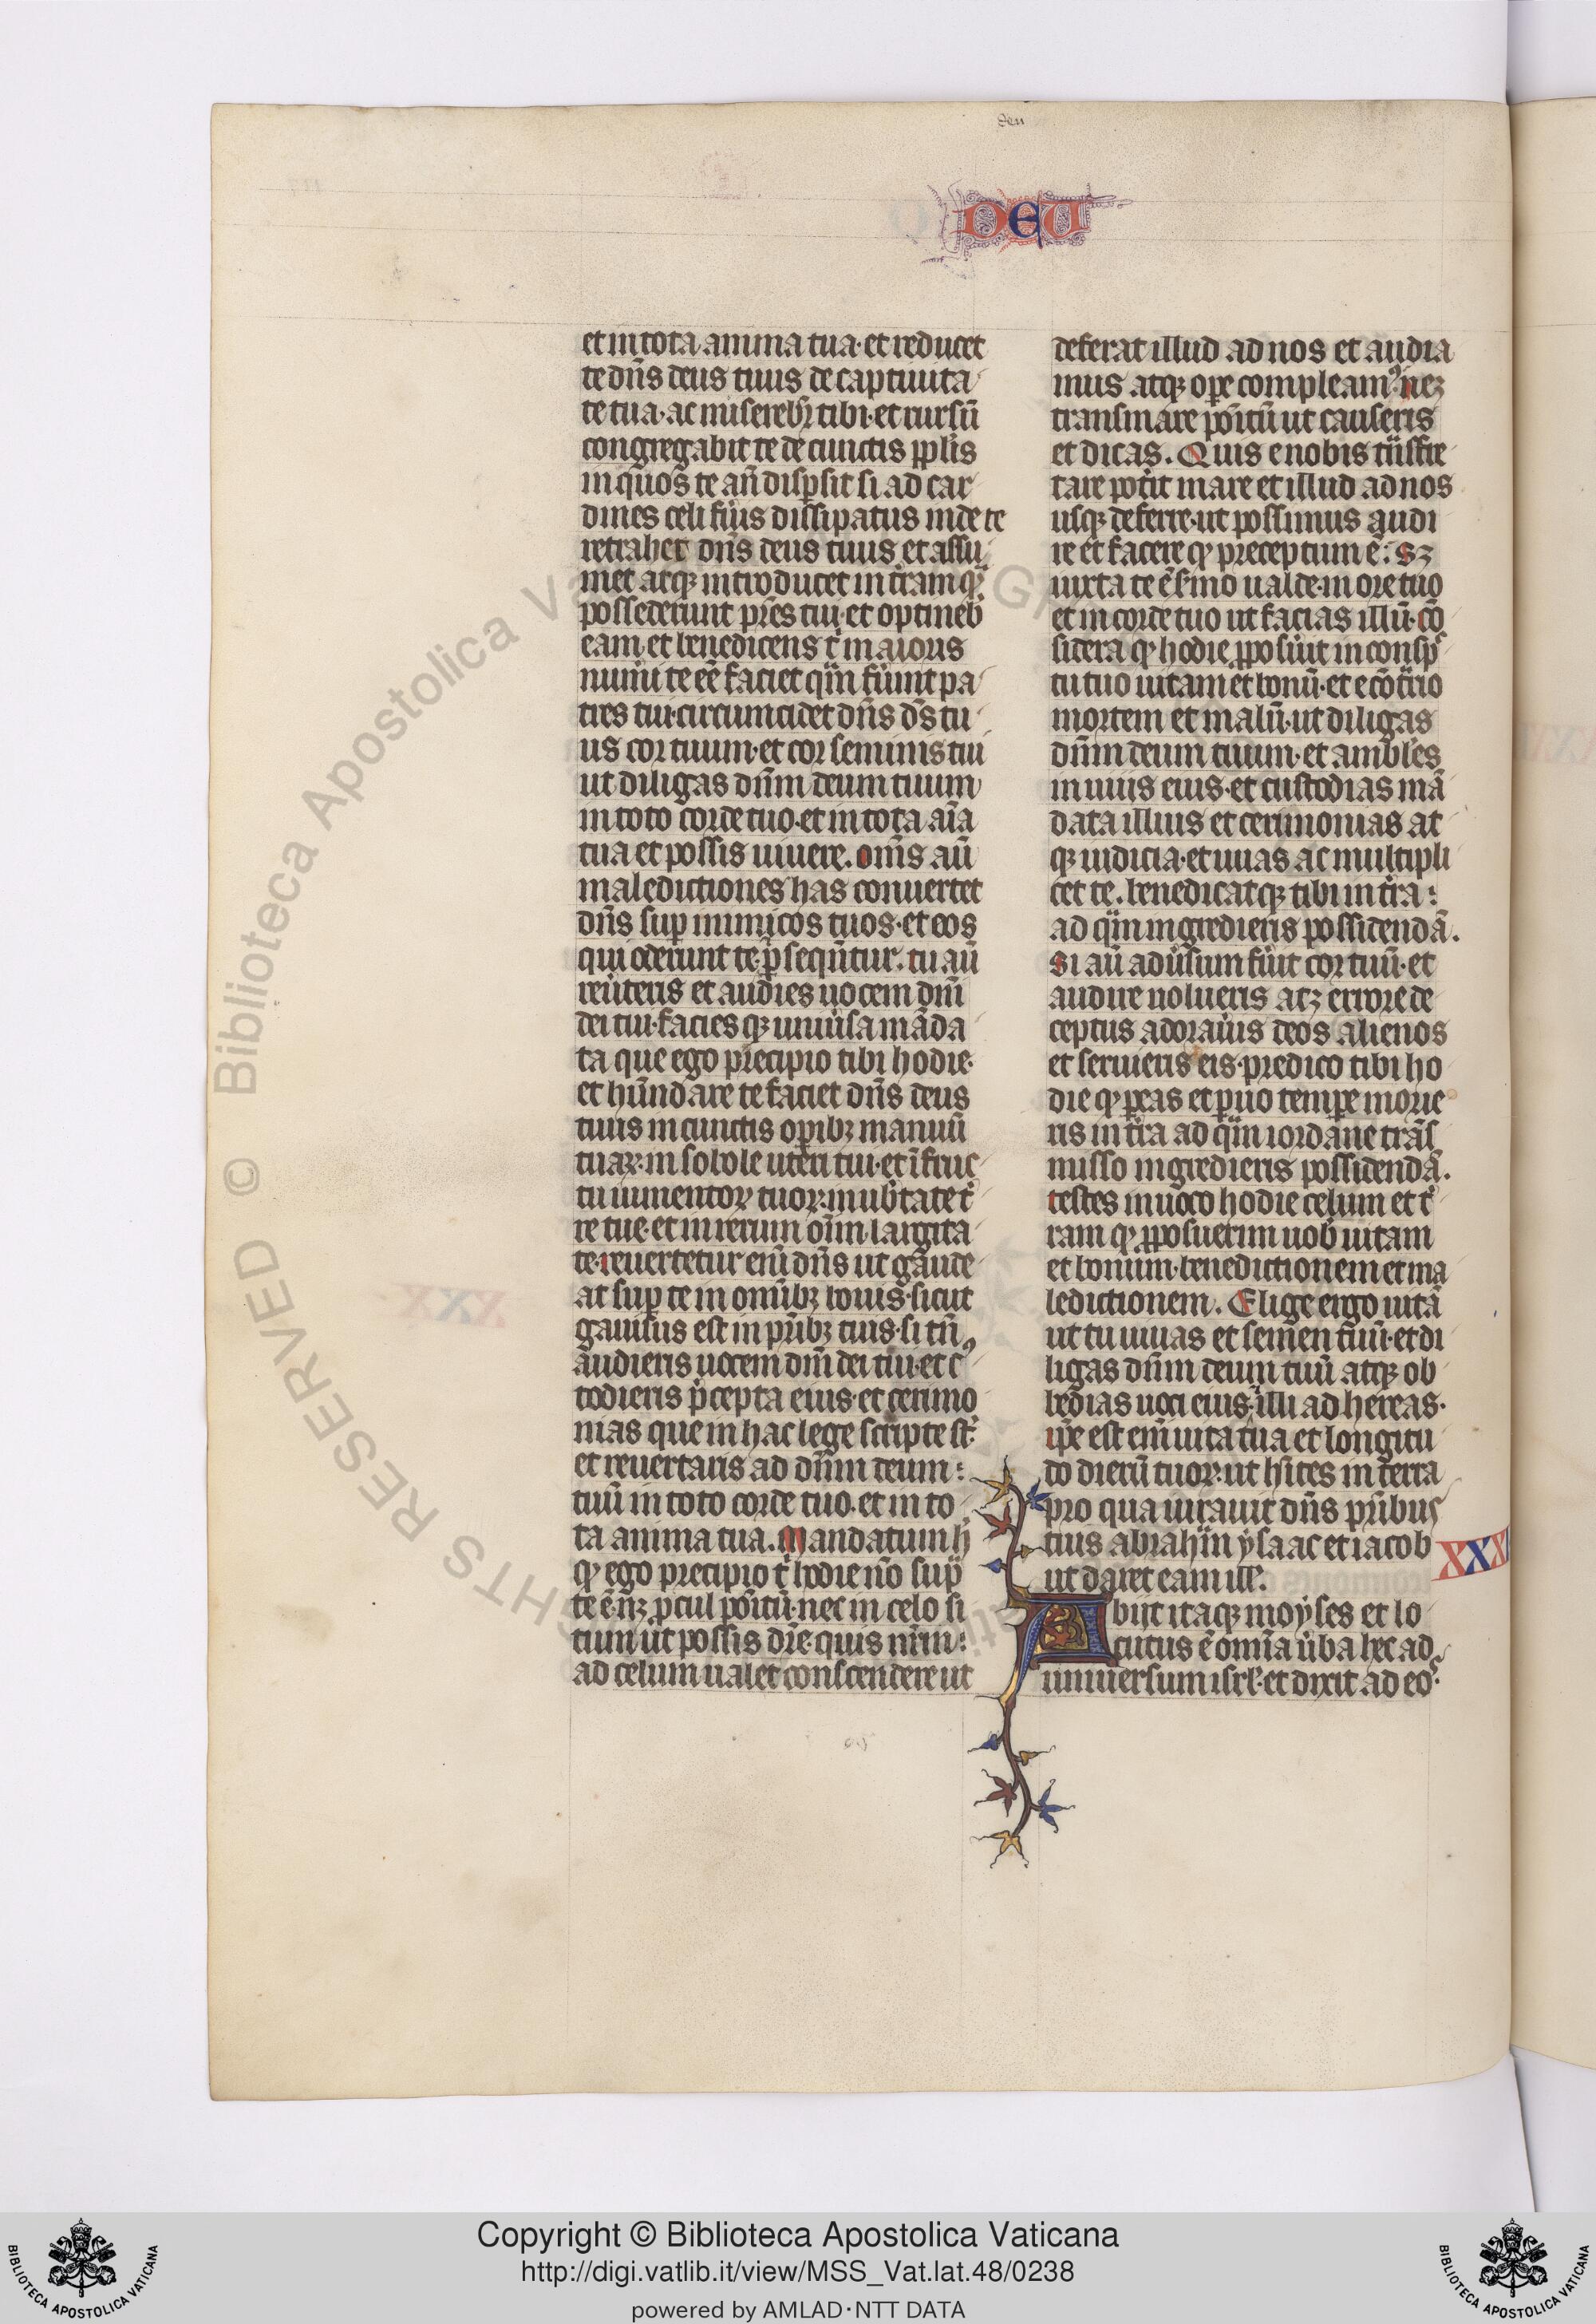 Deu
DEU
et in tota anima tua· et reducet
te dn̄s deus tuus de captiuita
te tua· ac miserebr̄ tibi· et rursū
congregabit te de cunctis pplis
in quos te an̄ disp̱sit si ad car
dines celi fūis dissipatus inde te
retrahet dn̄s deus tuus et assu
met atqꝫ introducet in t̄ram qm̄
possederunt pr̄es tui· et optineb̄
eam· et benedicens t̄ maioris
num̄i te eē faciet q̄ȝ fūunt pa
tres tui· circumcidet dn̄s ds̄ tu
us cor tuum· et cor seminis tui
ut diligas dn̄m deum tuum
in toto corde tuo· et in tota aīa
tua et possis uiuere. om̄s aū
maledictiones has conuertet
dn̄s sup̱ inimicos tuos· et eos
qui oderunt te p̱seqūtur. tu aū
reūteris et audies uocem dn̄i
dei tui· facies qꝫ uniūsa māda
ta que ego precipio tibi hodie·
et hūndare te faciet dn̄s deus
tuus in cunctis op̱ibꝫ manuū
tuaꝝ· in sobole uteri tui· et ī fruc
tu iumentoꝝ tuoꝝ· in ub̄tate t̄
re tue· et in rerum oīm largita
te· reuertetur enī dn̄s ut gaude
at sup̱ te in omībꝫ bonis· sicut
gauisus est in pr̄ibꝫ tuis· si tn̄
audieris uocem dn̄i dei tui· et c᷒
todieris p̄cepta eius· et cerimo
nias que in hac lege scripte st̄·
et reuertaris ad dn̄m deum
tuū in toto corde tuo· et in to
ta anima tua. Mandatum h̄
qͥ ego precipio t̄ hodie nō sup̄
te ē· nꝫ p̱cul pōitū· nec in celo si
tum ut possis dr̄e· quis nr̄m
ad celum ualet conscendere ut
deferat illud ad nos et audia
mus atqꝫ op̱e compleam᷒ neꝫ
trans mare pōitū ut causeris
et dicas. Quis e nobis t̄nsfre
tare pot̄it mare et illud ad nos
usqꝫ deferre· ut possimus audi
re et facere qͥ preceptum ē· sꝫ
iuxta te ē s̄mo ualde· in ore tuo
et in corde tuo ut facias illū· cō
sidera qͥ hodie ꝓposūit in consp̄
tu tuo uitam et bonū· et e cōt̄rio
mortem et malū· ut diligas
dn̄m deum tuum· et ambl̄es
in uiis eius· et custodias mā
data illius et cerimonias at
qꝫ iudicia· et uiuas ac multipli
cet te. benedicatqꝫ tibi in t̄ra
ad q̄m ingredieris possidendā.
si aū adūsum fūit cor tuū· et
audire nolueris atꝫ errore de
ceptus adoraūis deos alienos
et seruieris eis· predico tibi ho
die qͥ p̱eas et p̱uo temp̱e morie
ris in t̄ra ad q̄m iordane trās
misso ingredieris possidendā.
testes inuoco hodie celum et t̄
ram qͥ ꝓposuerim uob̄ uitam
et bonum· benedictionem et ma
ledictionem. Elige ergo uitā
ut tu uiuas et semen tuū· et di
ligas dn̄m deum tuū atqꝫ ob
bedias uoci eius· ⁊ illi adhereas·
ip̄e est enī uita tua et longitu
do dierū tuoꝝ· ut hītes in terra
pro qua iurauit dn̄s pr̄ibus
tuis abraham ysaac et iacob
ut daret eam ill̄.
XXXI
Abiit itaqꝫ moyses et lo
cutus ē omīa ūba hec ad
uniuersum isrl̄· et dixit ad eo᷒
XXX
© Biblioteca Apostolica Vaticana
RIGHTS RESERVED
Copyright © Biblioteca Apostolica Vaticana
http://digi.vatlib.it/view/MSS_Vat.lat.48/0238
powered by AMLAD·NTT DATA
BIBLIOTECA APOSTOLICA VATICANA
BIBLIOTECA APOSTOLICA VATICANA